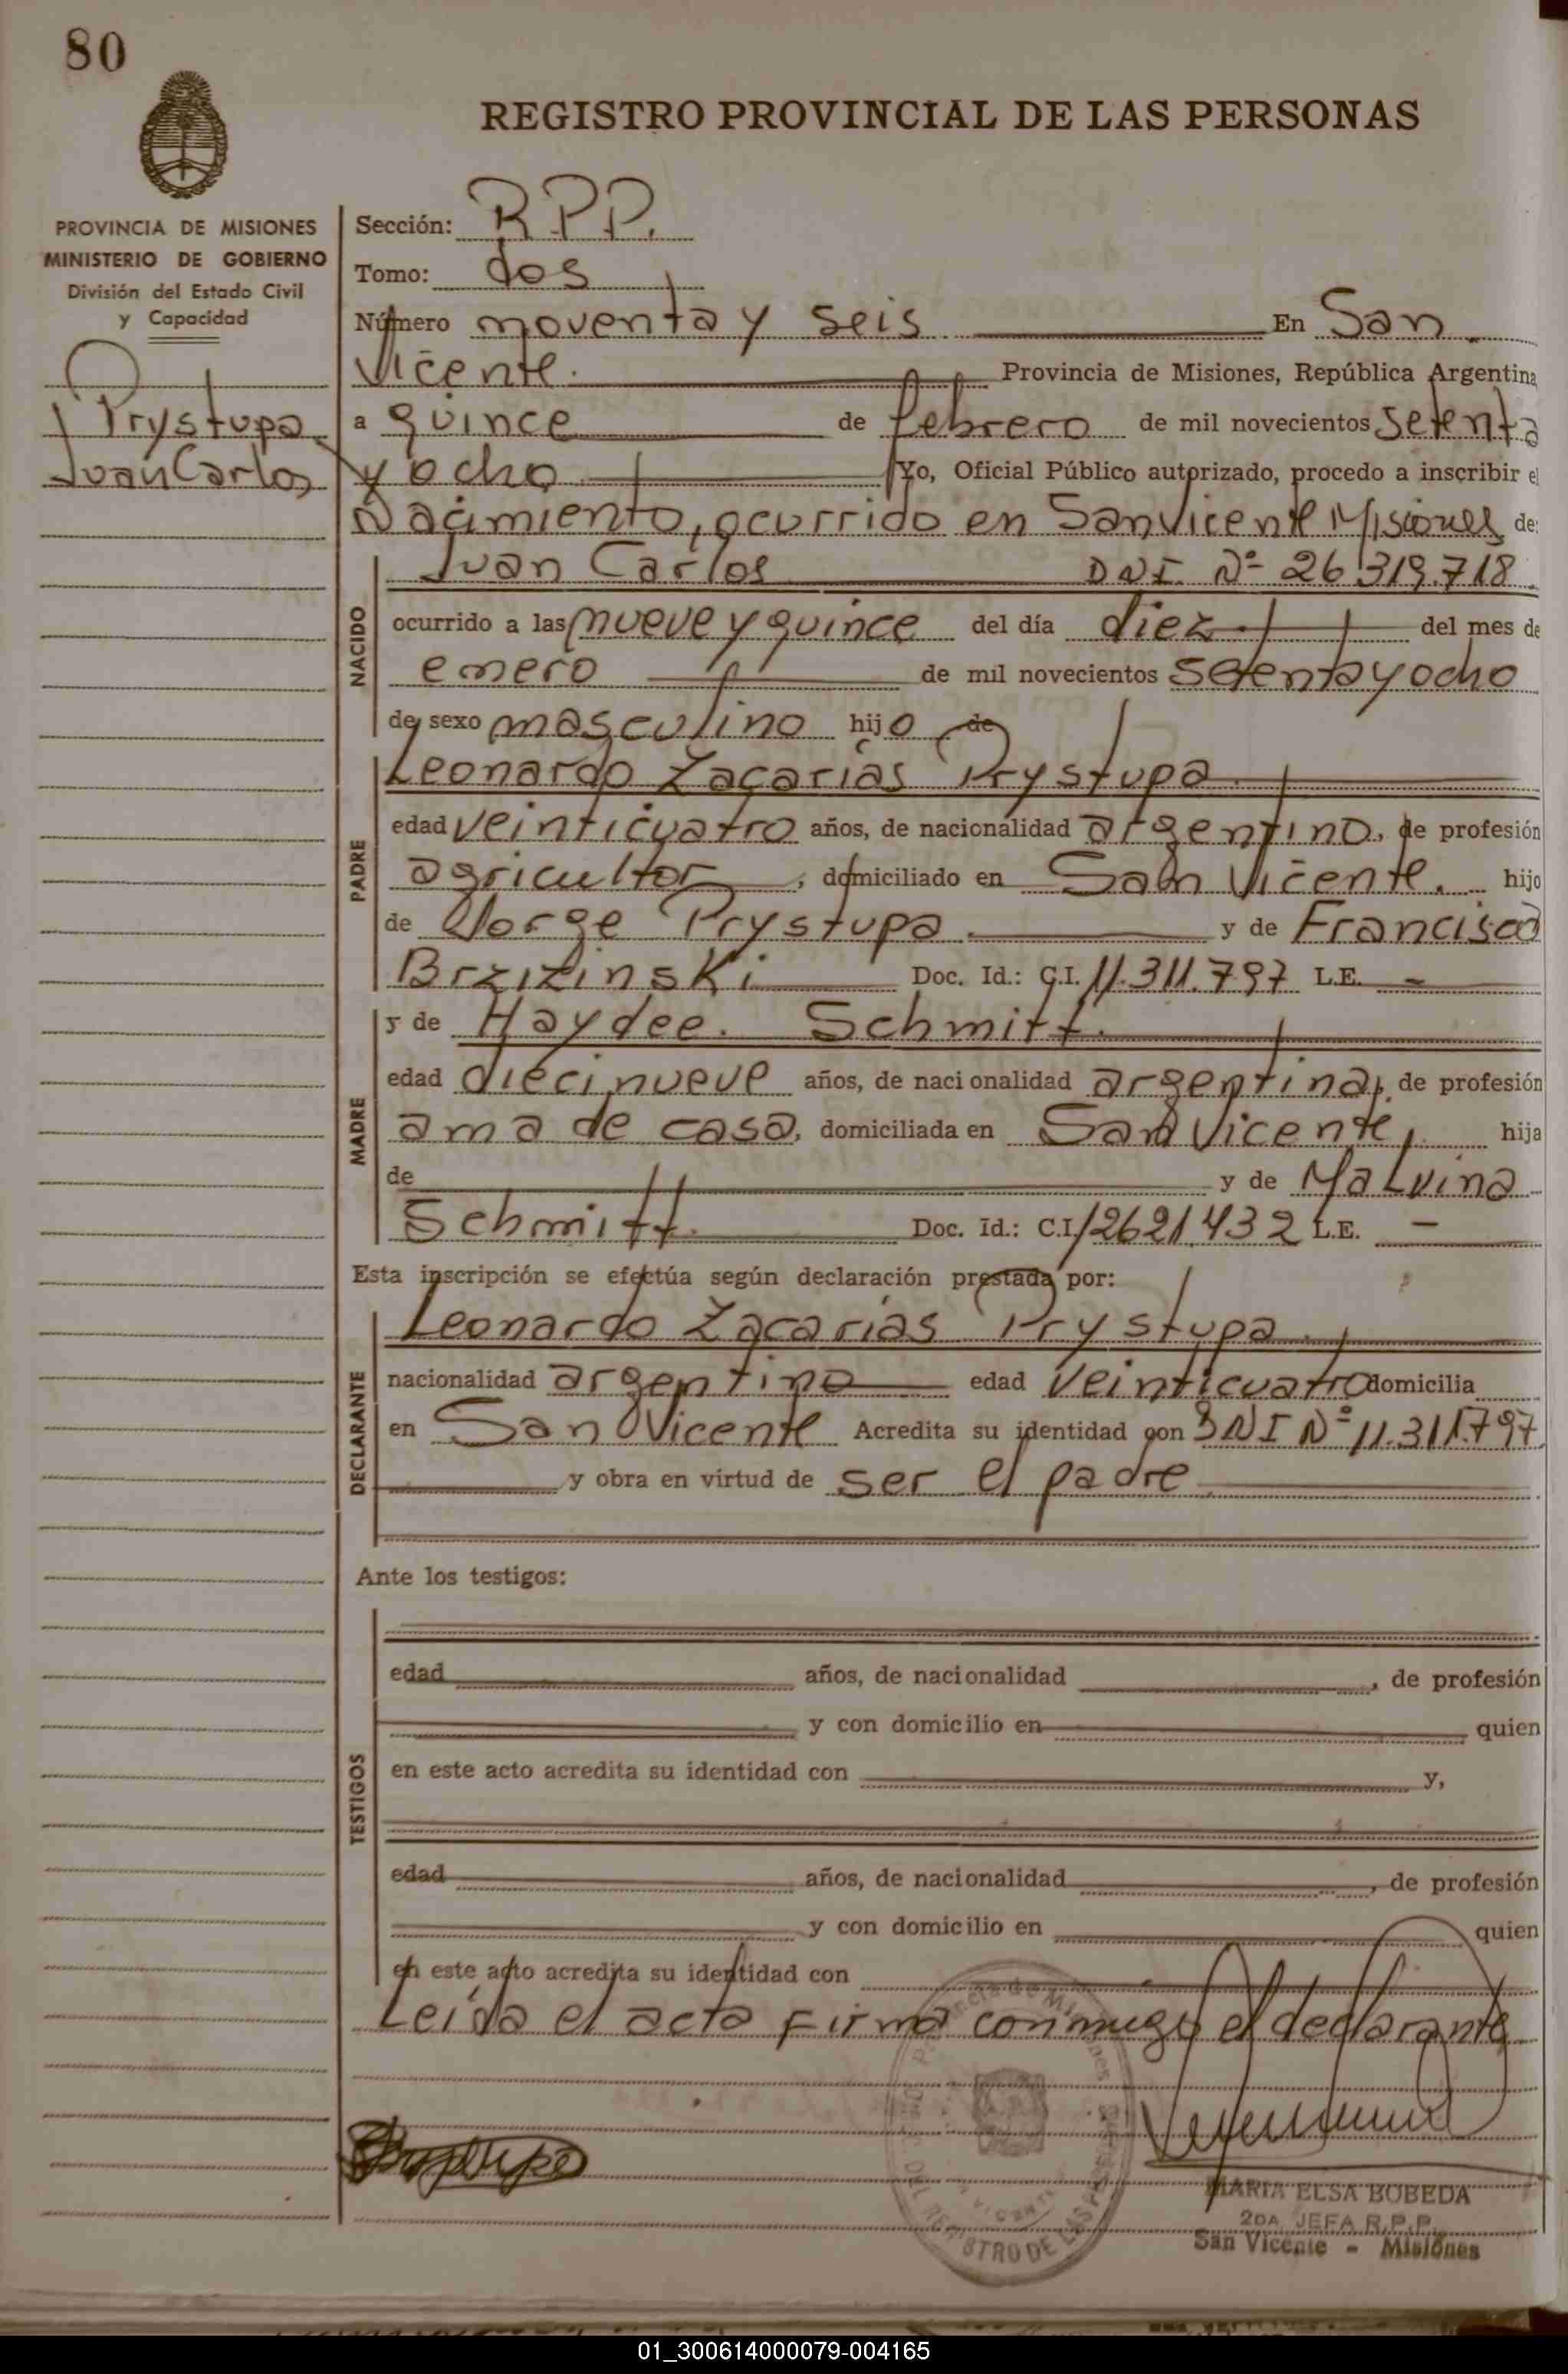 80
REGISTRO PROVINCIAL DE LAS PERSONAS
PROVINCIA DE MISIONES
MINISTERIO DE GOBIERNO
División del Estado Civil
y Capacidad
Prystupa
Juan Carlos
Sección: R.P.P.
Tomo: dos
Número noventa y seis En San
Vicente. Provincia de Misiones, República Argentina
a quince de febrero de mil novecientos setenta
y ocho Yo, Oficial Público autorizado, procedo a inscribir el
Nacimiento, ocurrido en San Vicente Misiones de:
NACIDO
Juan Carlos DNI. Nº 26.319.718
ocurrido a las nueve y quince del día diez del mes de
enero de mil novecientos setenta y ocho
de sexo masculino hijo de
PADRE
Leonardo Zacarías Prystupa.
edad veinticuatro años, de nacionalidad argentino, de profesión
agricultor, domiciliado en San Vicente. hijo
de Jorge Prystupa y de Francisca
Brzizinski Doc. Id.: C.I. 11.311.797 L.E. -
MADRE
y de Haydee. Schmitt.
edad diecinueve años, de nacionalidad argentina, de profesión
ama de casa, domiciliada en San Vicente, hija
de y de Malvina
Schmitt. Doc. Id.: C.I. 12621.432 L.E. -
Esta inscripción se efectúa según declaración prestada por:
DECLARANTE
Leonardo Zacarías Prystupa.
nacionalidad argentino edad veinticuatro domicilia
en San Vicente Acredita su identidad con DNI Nº 11.311.797
y obra en virtud de ser el padre
Ante los testigos:
TESTIGOS
edad años, de nacionalidad , de profesión
y con domicilio en quien
en este acto acredita su identidad con y,
edad años, de nacionalidad , de profesión
y con domicilio en quien
en este acto acredita su identidad con
Leída el acta firma conmigo el declarante
MARIA ELSA BOBEDA
2DA JEFA R.P.P.
San Vicente - Misiones
01_300614000079-004165